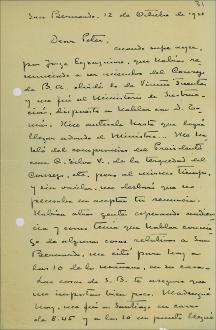 San Bernardo, 12 de Octubre de 19
Dear Peter,
cuando supe ayer,
por Jorge que habías re-
nunciado a ser miembro del Consejo
de B. A.
y me fuí al Ministerio de
dispuesto a hablar con D.
Hice antesala hasta que logré
llegar adonde el Ministro... Me ha-
bló del compromiso del Presidente
con C. Silva V., de la terquedad del
Consejo, etc, pero al mismo tiempo,
y sin me declaró que no
pensaba en aceptar tu renuncia.
Había otra gente esperando audien-
cia y como tenía que hablar conmi-
go de algunas cosas relativas a San
Bernardo, me citó para hoy a
las 10 de la mañana, en su casa.
Las cosas de S. B. te aseguro que
me importan bien poco. Madrugué
hoy, me fuí a Santiago en tren
de 8.45 y a las 10 en punto llegué